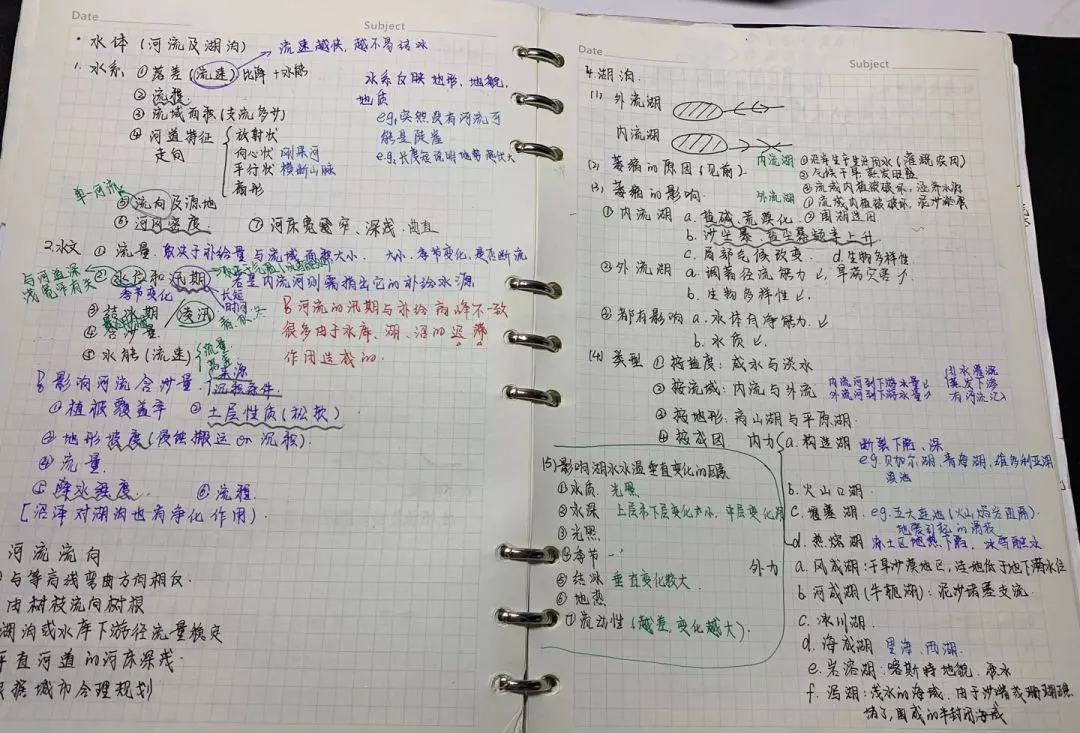 Date
Subject
·水体(河流及湖泊) 流速越快,越不易结冰
1.水系:①落差(流速)比降+水能
②流程
③流域面积(支流多少)
④河道特征
走向
放射状
向心状 刚果河
平行状 横断山脉
扇形
水系反映地形、地貌,
地质
e.g.突然没有河流可
能是陡崖
e.g.长度短说明地势起伏大
单一河流
⑤流向及源地
⑥河网密度 ⑦河床宽窄、深浅、曲直
2.水文 ①流量:取决于补给量与流域面积大小. 大小、季节变化、是否断流
与河道深
浅宽窄有关
②水位和汛期
若是内流河则需指出它的补给水源
季节变化
长短
时间
③结冰期
凌汛
④含沙量
⑤水能(流速)
流量
高差
河流的汛期与补给高峰不一致
很多由于水库、湖、沼的迟滞
作用造成的.
影响河流含沙量
来源
沉积条件
①植被覆盖率 ②土层性质(松软)
③地形坡度(侵蚀搬运 or 沉积).
④流量.
⑤降水强度. ⑥流程.
[沼泽对湖泊也有净化作用).
河流流向
与等高线弯曲方向相反.
由树枝流向树根
湖泊或水库下游径流量稳定
平直河道的河床深浅.
根据城市合理规划
Date
Subject
4.湖泊.
(1) 外流湖
内流湖
(2) 萎缩的原因(见前)
内流湖 ①沿岸生产生活用水(灌溉农田)
②气候干旱蒸发旺盛
③流域内植被破坏,涵养水源
(3) 萎缩的影响.
外流湖 ①流域内植被破坏,泥沙淤积
②围湖造田
①内流湖 a.盐碱、荒漠化.
b.沙尘暴、盐尘暴频率上升
c.局部气候改变. d.生物多样性
②外流湖 a.调蓄径流能力↓,旱涝灾害↑
b.生物多样性↓.
③都有影响 a.水体自净能力.↓
b.水质↓.
(4) 类型 ①按盐度:咸水与淡水
②按流域:内流与外流
内流河到下游水量↓
外流河到下游水量↑
③按地形:高山湖与平原湖.
④按成因
内力
a.构造湖 断裂下陷、深
e.g.贝加尔湖、青海湖、维多利亚湖
滇池
b.火山口湖.
c.堰塞湖 e.g.五大连池(火山熔岩直麻).
d.热熔湖 冻土区地热下陷,冰雪融水
外力
a.风成湖:干旱沙漠地区,洼地低于地下潜水位
b.河成湖(牛轭湖):泥沙堵塞支流.
c.冰川湖.
d.海成湖 里海、西湖.
e.岩溶湖.喀斯特地貌.
f.潟湖:浅水的海域,由于沙嘴或珊瑚礁
(5)影响湖水水温垂直变化的因素
①水质.光照
②水深
③光照
④季节
⑤结冰 垂直变化较大
⑥地热
⑦流动性(越差,变化越大).